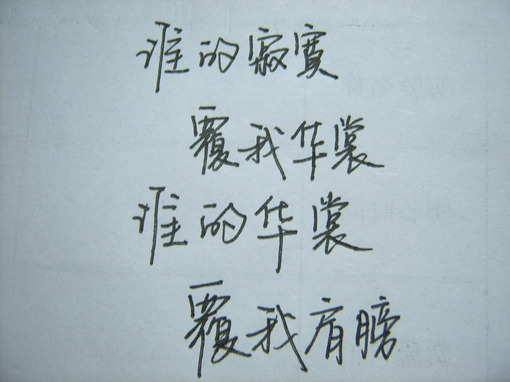 谁的寂寞
覆我华裳
谁的华裳
覆我肩膀